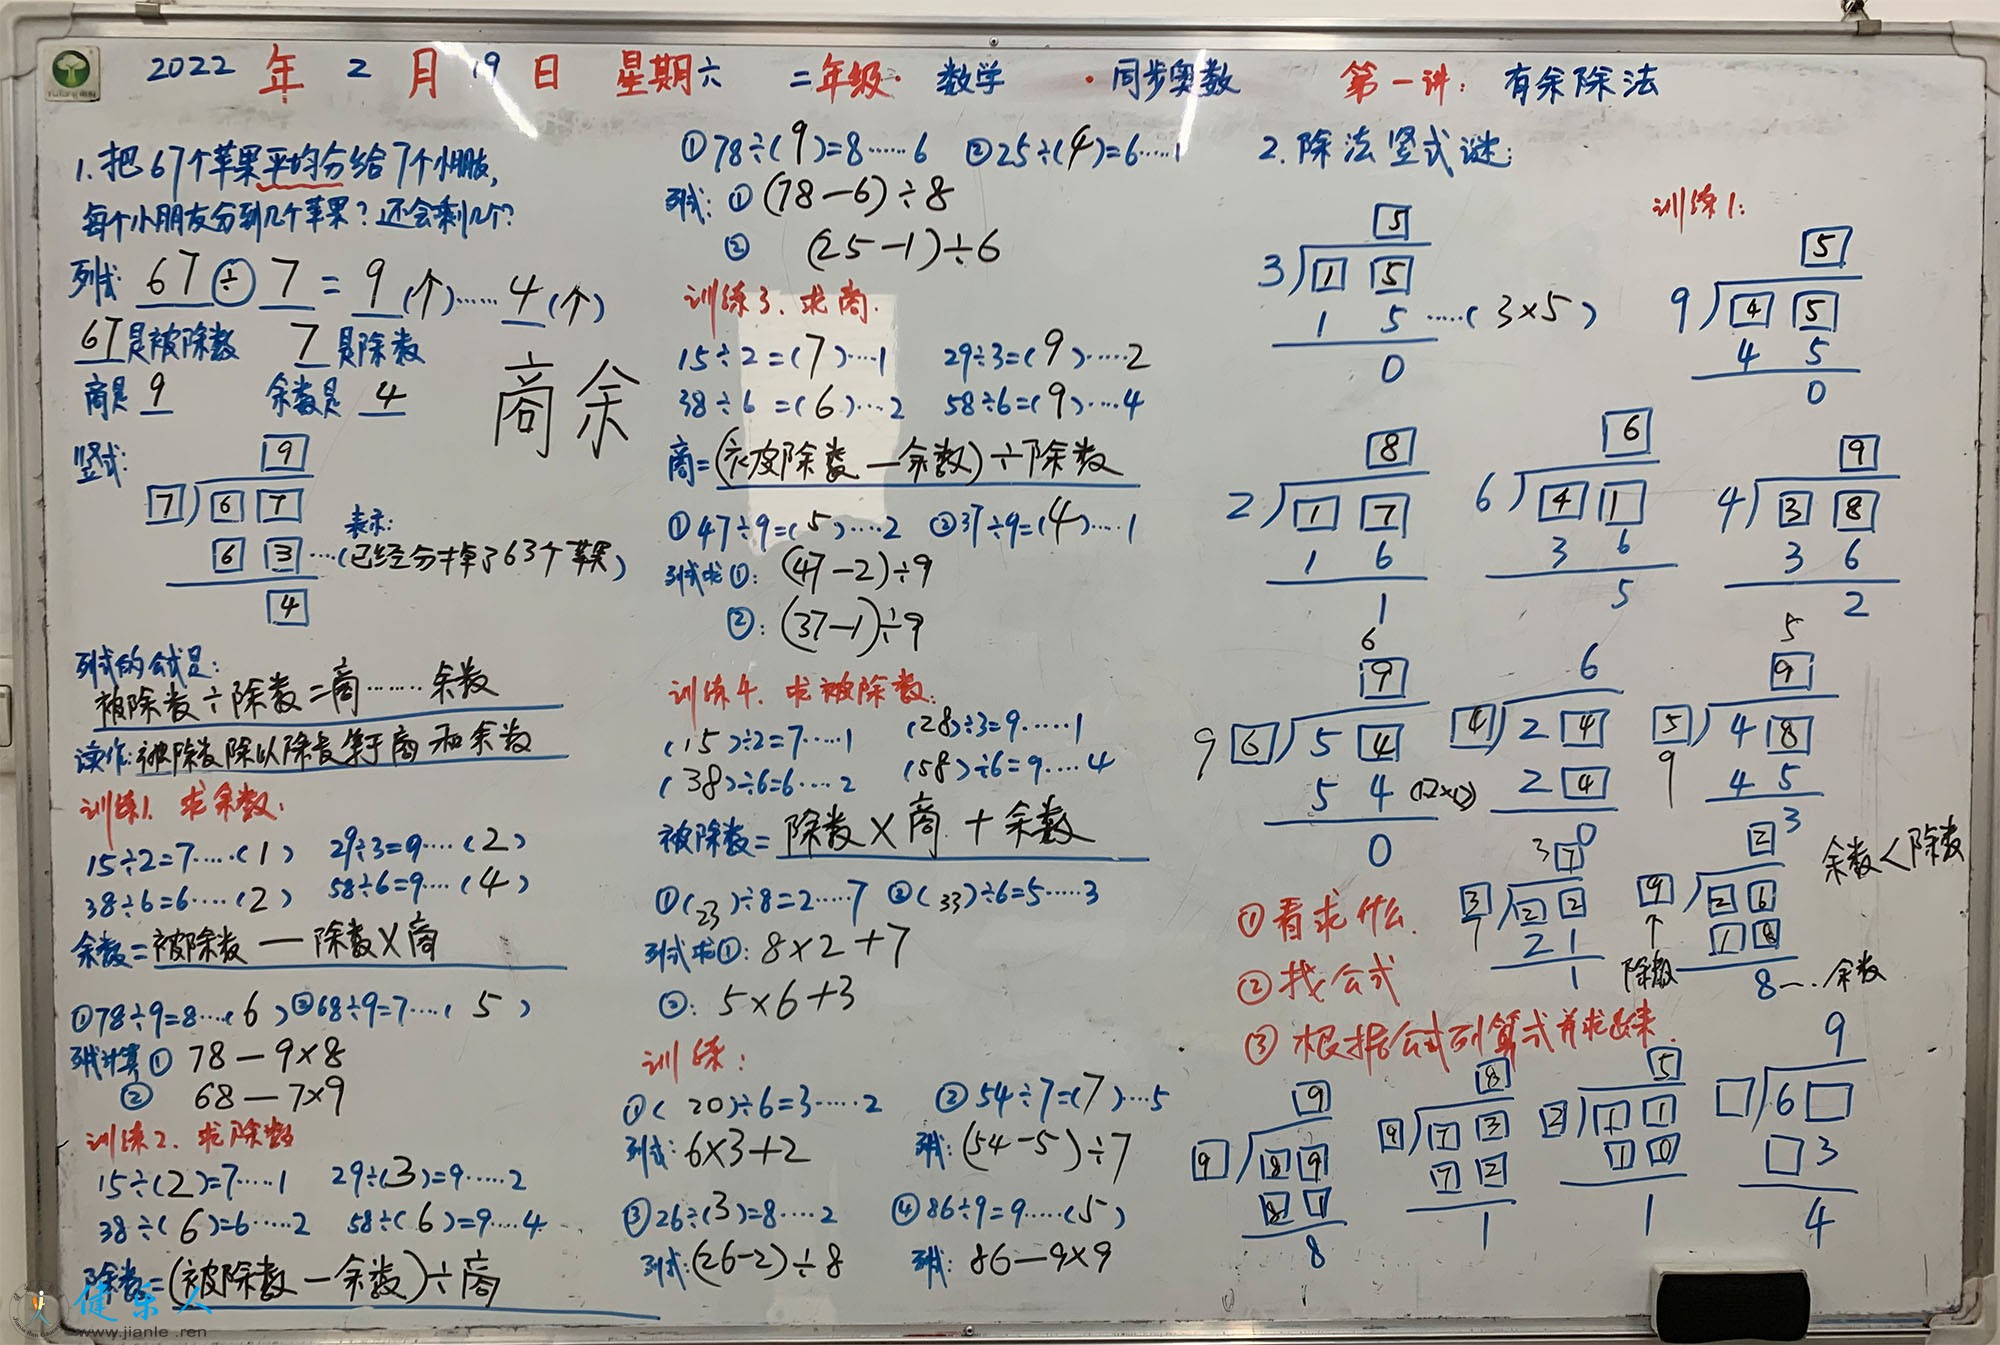 2022年2月19日 星期六 二年级·数学·同步奥数 第一讲:有余除法
1.把67个苹果平均分给7个小朋友,
每个小朋友分到几个苹果?还会剩几个?
列式: 67÷7=9(个)……4(个)
67是被除数 7是除数
商是9 余数是4
商余
竖式:
9
7 67
63 …(已经分掉了63个苹果)
表示:
4
列式的公式是:
被除数÷除数=商……余数
读作:被除数除以除数等于商和余数
训练1.求余数:
15÷2=7……(1) 29÷3=9……(2)
38÷6=6……(2) 58÷6=9……(4)
余数=被除数—除数×商
①78÷9=8……(6) ②68÷9=7……(5)
列式计算① 78—9×8
② 68—7×9
训练2.求除数
15÷(2)=7……1 29÷(3)=9……2
38÷(6)=6……2 58÷(6)=9……4
除数=(被除数—余数)÷商
①78÷(9)=8……6 ②25÷(4)=6……1
列式:①(78—6)÷8
② (25—1)÷6
训练3.求商.
15÷2=(7)……1 29÷3=(9)……2
38÷6=(6)…2 58÷6=(9)……4
商=(被除数—余数)÷除数
①47÷9=(5)……2 ②37÷9=(4)……1
列式求①: (47—2)÷9
②: (37—1)÷9
训练4.求被除数:
(15)÷2=7……1 (28)÷3=9……1
(38)÷6=6……2 (58)÷6=9……4
被除数=除数×商+余数
①(23)÷8=2……7 ②(33)÷6=5……3
列式求①: 8×2+7
②: 5×6+3
训练:
①(20)÷6=3……2 ②54÷7=(7)…5
列式: 6×3+2 列式: (54-5)÷7
③26÷(3)=8……2 ④86÷9=9……(5)
列式:(26-2)÷8 列式: 86—9×9
2.除法竖式谜:
训练1:
5
3 15
15……(3×5)
0
5
9 45
45
0
8
2 17
16
1
6
6 41
36
5
9
4 38
36
2
6
9
9 6 54
54
0
6
4 24
24
0
5
9
5 48
9 45
3
3 7
3 22
7 21
1
2
9 26
18
8…余数
除数
余数<除数
①看求什么.
②找公式
③根据公式列算式并求出来.
9
9 89
81
8
8
9 73
72
1
5
2 11
10
1
9
6
3
4
健乐人
www.jianle.ren